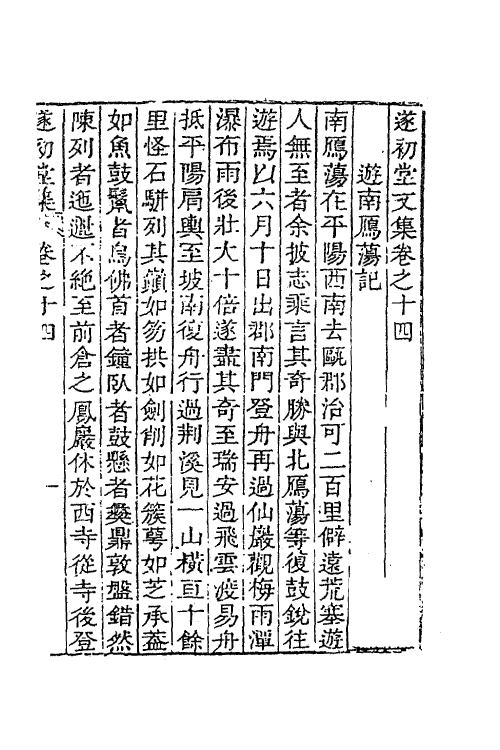 遂初堂文集卷之十四
遊南鴈蕩記
南鴈蕩在平陽西南去甌郡治可二百里僻遠荒塞遊
人無至者余披志乘言其奇勝與北鴈蕩等復鼓銳往
遊焉以六月十日出郡南門登舟再過仙巖觀梅雨潭
瀑布雨後壯大十倍遂盡其奇至瑞安過飛雲渡易舟
抵平陽肩輿至坡南復舟行過荆溪見一山橫亘十餘
里怪石駢列其鑱如笏拱如劍削如花簇萼如芝承蓋
如魚鼓鬣者鳥佛首者鐘臥者鼓懸者彝鼎敦盤錯然
陳列者迤邐不絕至前倉之鳳巖休於西寺從寺後登
遂初堂集 卷之十四 一